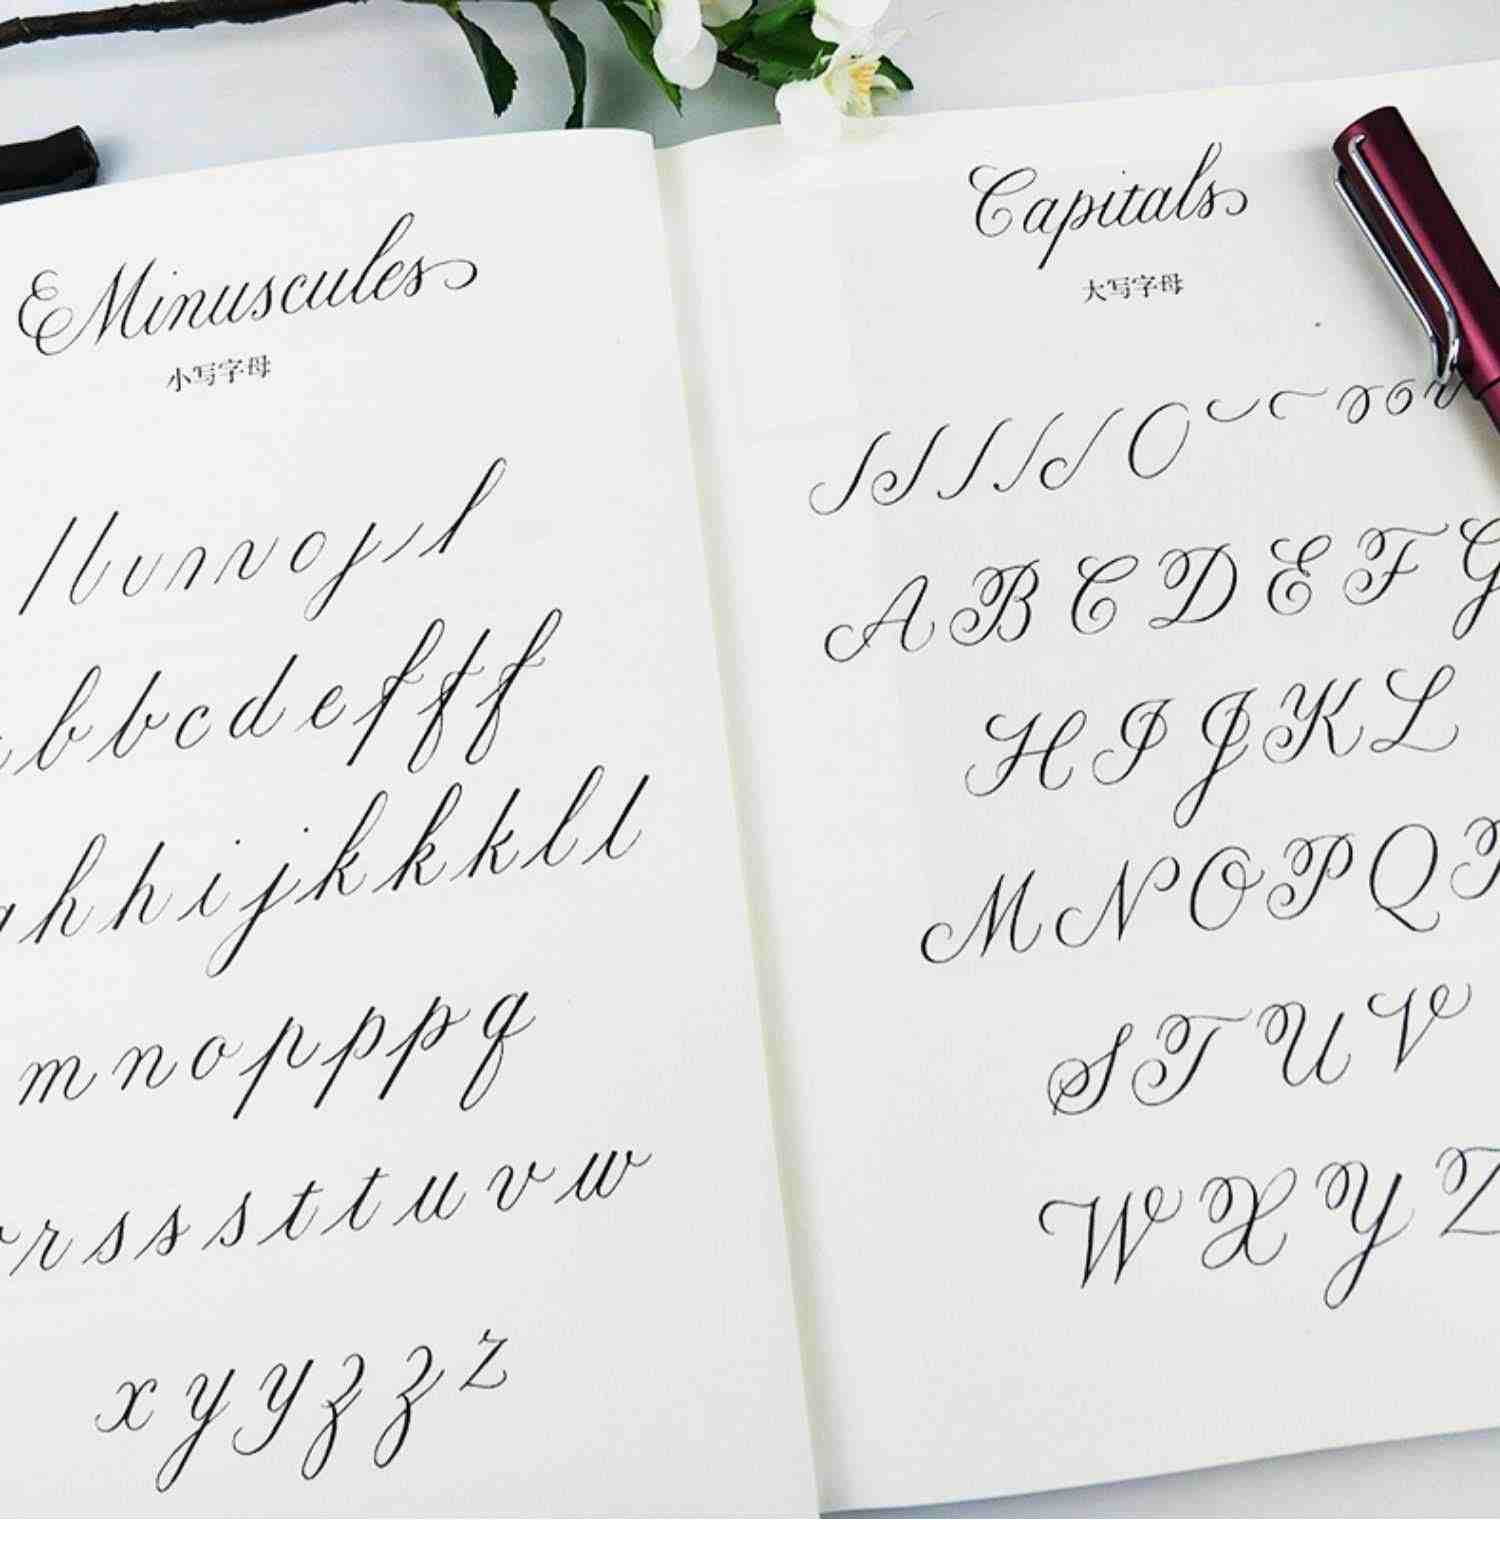 Minuscules
小写字母
b b c d e f f f
h h i j k k k l l
m n o p p p q
r r s s s t t u v w
x y y z z z
Capitals
大写字母
A B C D E F G
H I J K L
M N O P Q
S T U V
W X Y Z